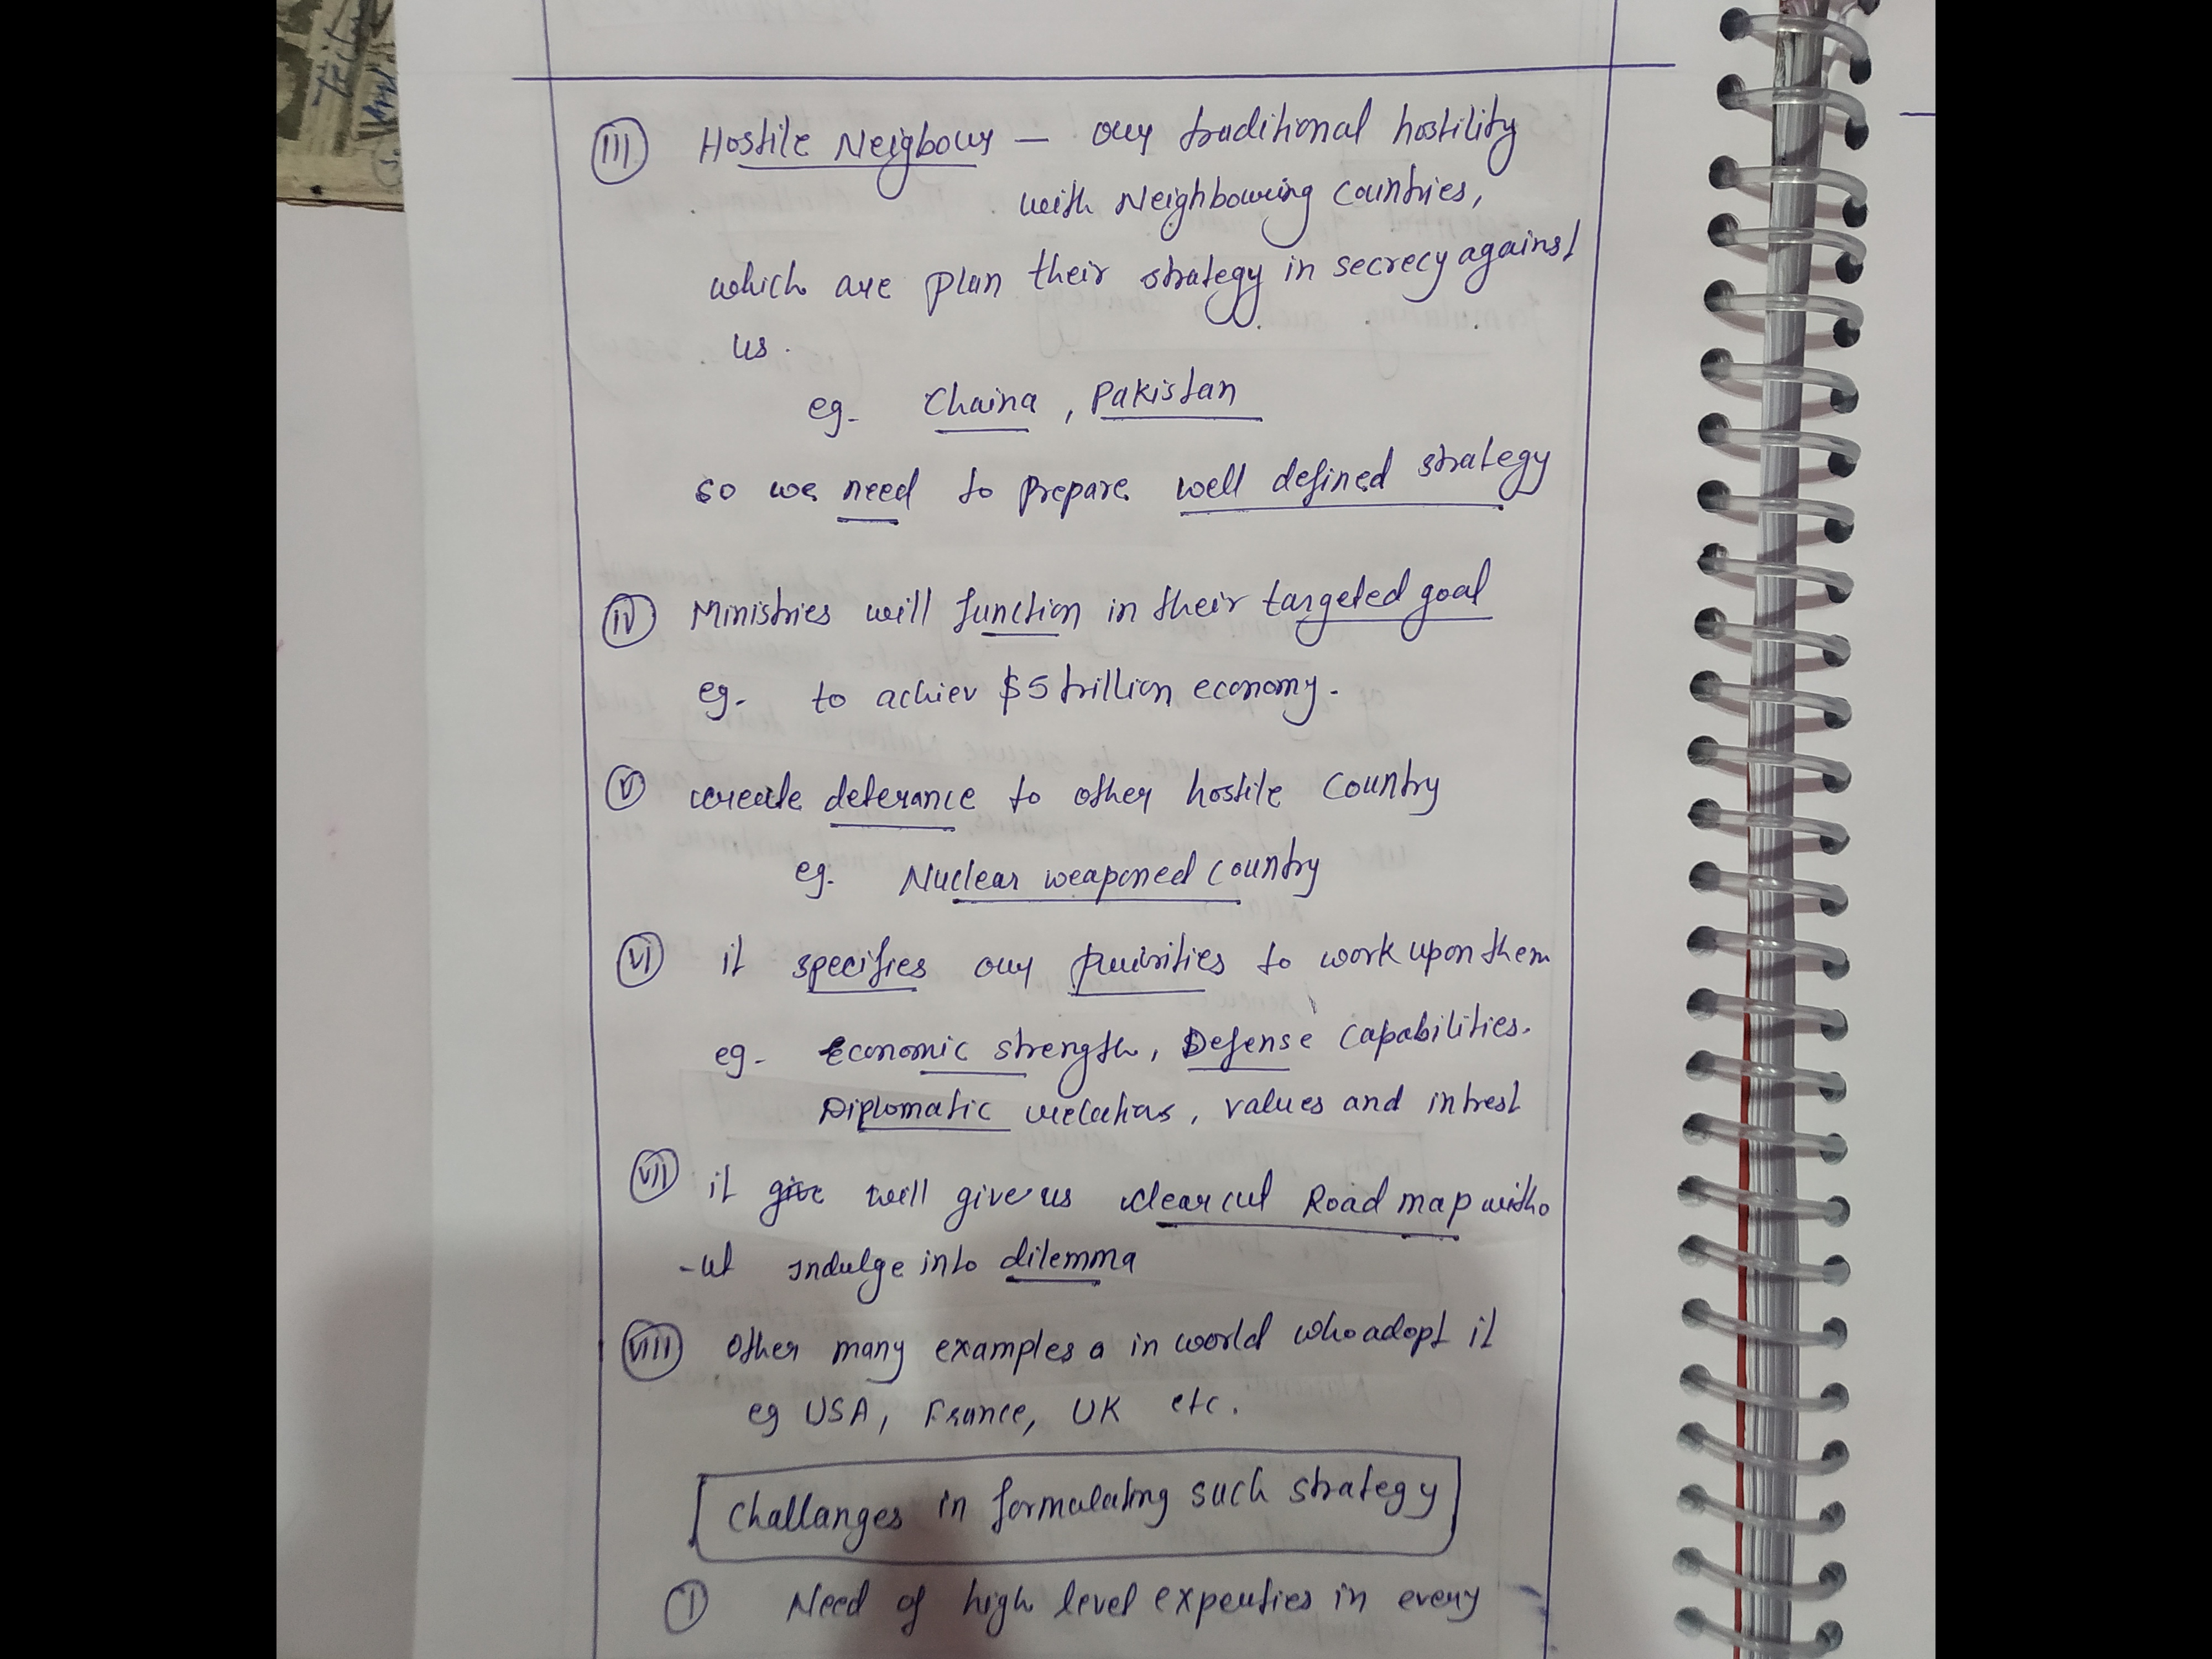 III Hostile Neigbour — our traditional hostility
with Neighbouring Countries,
which are plan their strategy in secrecy against
us.
eg- Chaina, Pakistan
so we need to prepare well defined strategy
IV Ministries will function in their targeted goal
eg- to achiev $5 trillion economy.
V create deterance to other hostile Country
eg. Nuclear weaponed country
VI it specifies our priorities to work upon them
eg- Economic strength, Defense Capabilities.
Diplomatic relations, values and intrest
VII it give will give us clear cut Road map witho
-ut indulge into dilemma
VIII other many examples in world who adopt it
eg USA, France, UK etc.
Challanges in formulating such strategy
I Need of high level experties in every